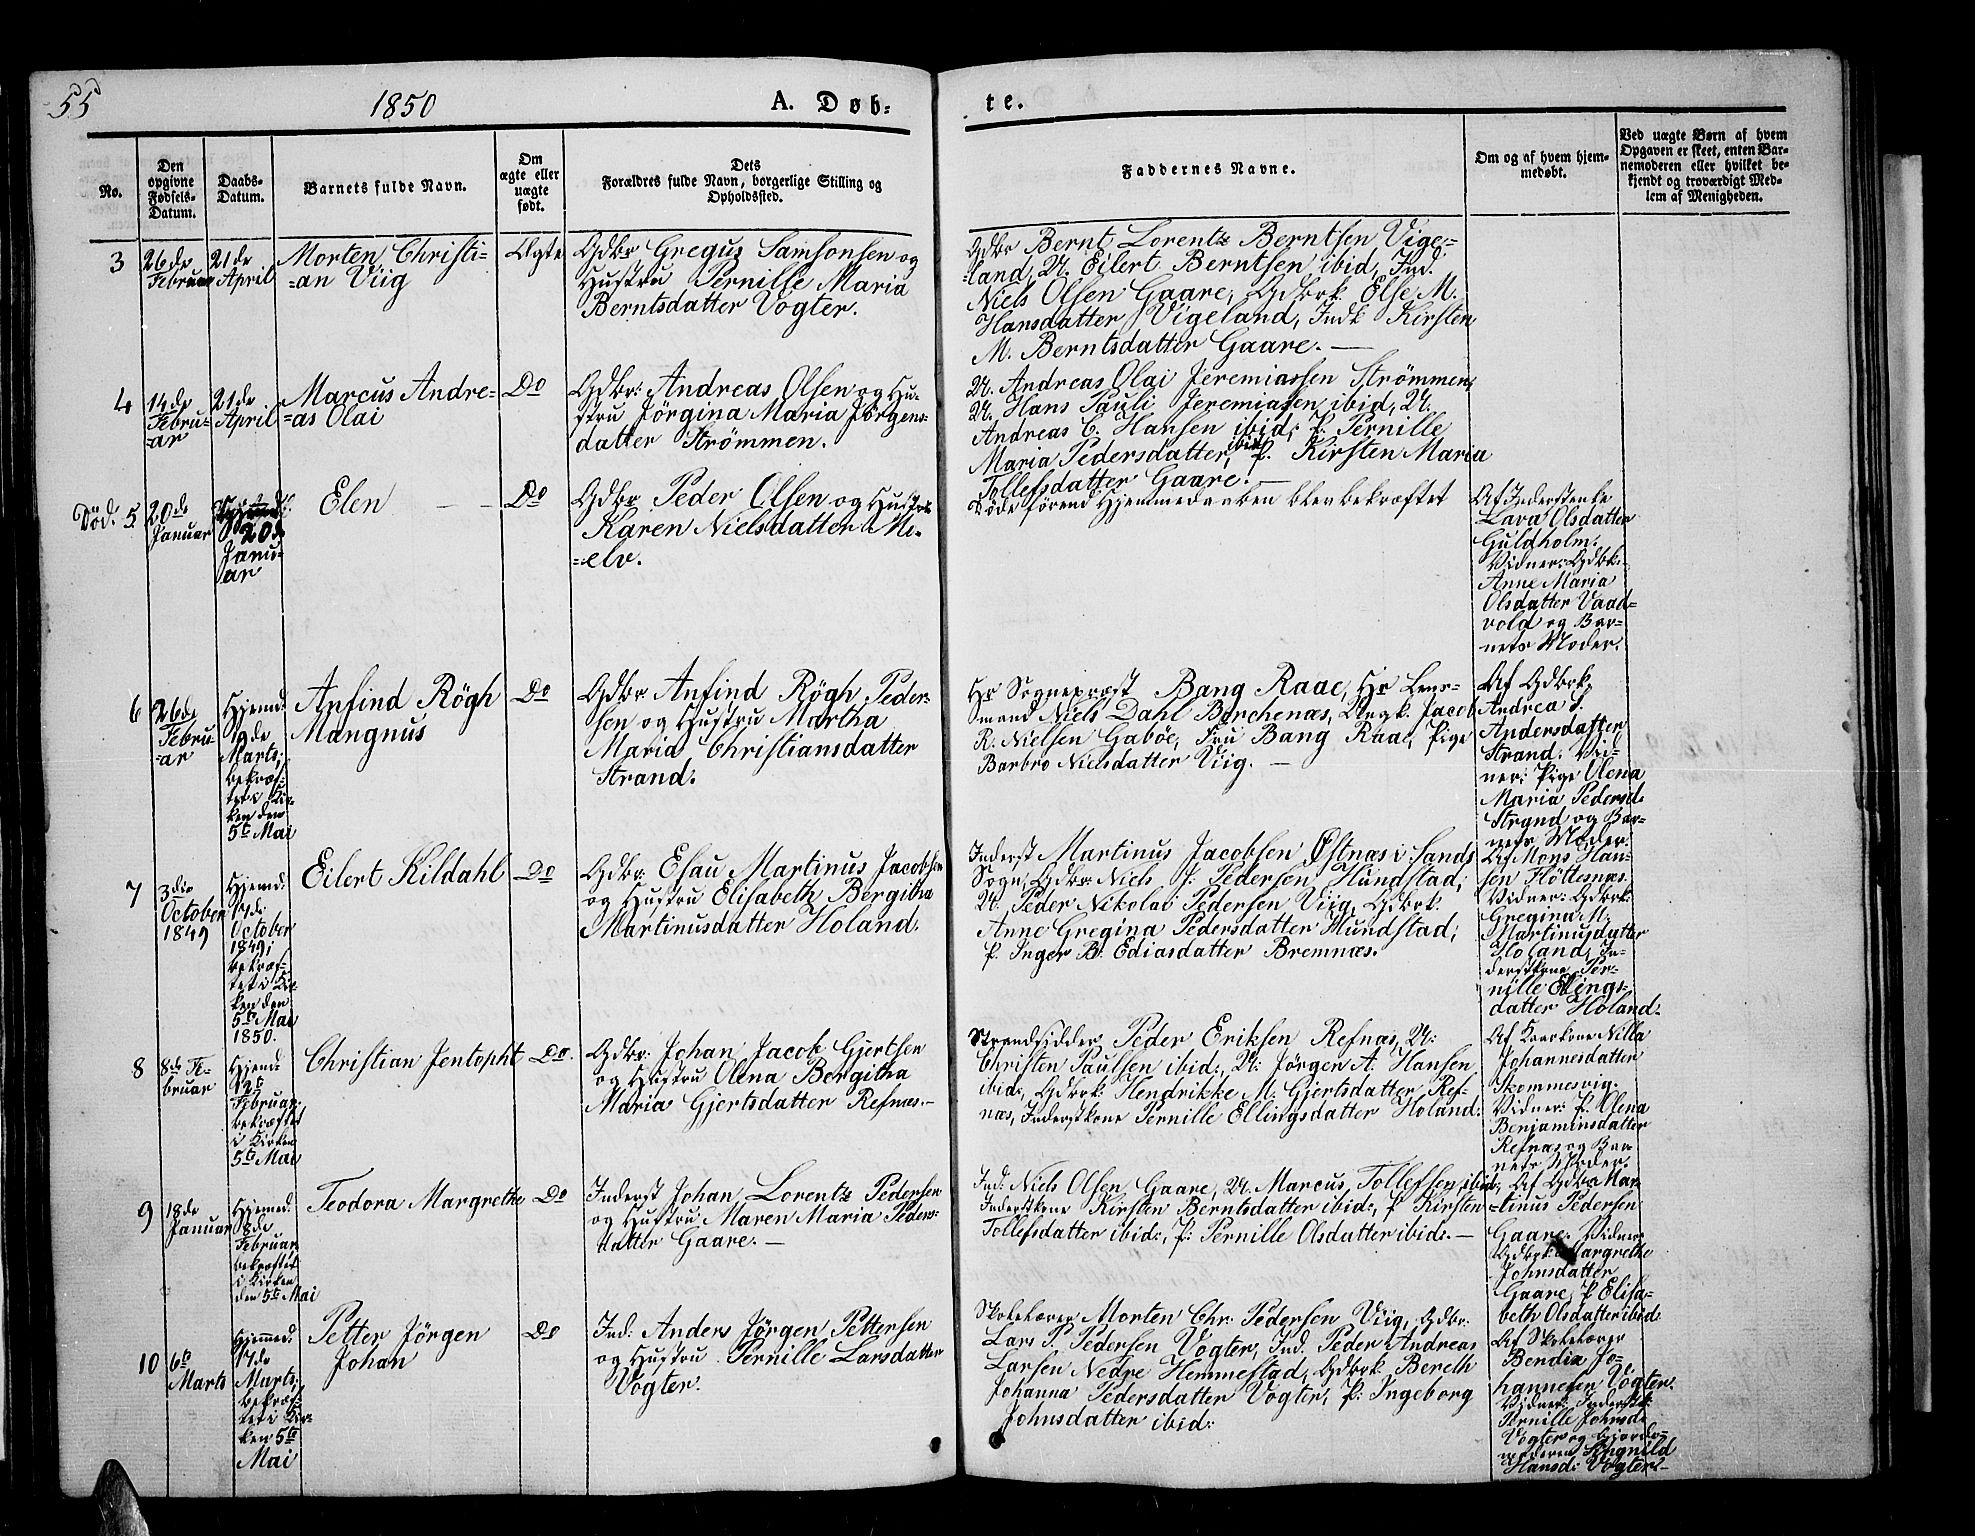 55
1850
A. Døb=
te.
No.
Den
opgivne
Fødsels-
Datum.
Daabs-
Datum.
Barnets fulde Navn.
Om
ægte eller
uægte
født.
Dets
Forældres fulde Navn, borgerlige Stilling og
Opholdssted.
Faddernes Navne.
Om og af hvem hjem-
medøbt.
Ved uægte Børn af hvem
Opgaven er skeet, enten Bar-
nemoderen eller hvilket be-
kjendt og troværdigt Med-
lem af Menigheden.
3
26de
Februar
21de
April
Morten Christi-
=an Viig
Ægte
Gdbr Gregus Samsonsen og
Hustru Pernille Maria
Berntsdatter Vogter.
Gdbr Bernt Lorentz Berntsen Vige=
=land, U. Eilert Berntsen ibid, Ind.
Niels Olsen Gaare, Gdbrk. Else M.
Hansdatter Vigeland, Indk Kirsten
M. Berntsdatter Gaare. —
4
14de
Febru-
-ar
21de
April
Marcus Andre-
=as Olai
Do
Gdbr: Andreas Olsen og Hu-
stru Jörgina Maria Jörgens-
datter Strömmen.
U. Andreas Olai Jeremiassen Strömmen,
U. Hans Pauli Jeremiassen ibid, U:
Andreas C. Hansen ibid; P. Pernille
Maria Pedersdatter, ibid P. Kirsten Maria
Tollefsdatter Gaare. —
Död. 5.
20de
Januar
20de
Janu-
ar
Elen
Do
Gdbr Peder Olsen og Hustru
Karen Nielsdatter Mi-
=elv.
Döde förend Hjemmedaaben blev bekræftet
Af Inderstenke
Lava Olsdatter
Guldholm.
Vidner: Gdbk.
Anne Maria
Olsdatter Vaad=
vold og Bar=
nets Moder.
6
26de
Febru-
-ar
Hjemd:
9de
Marts;
bekræf-
tet i Kir-
ken den
5te Mai
Anfind Rögh
Mangnus
Do
Gdbr Anfind Rögh Peder-
sen og Hustru Martha
Maria Christiansdatter
Strand.
Hr Sognepræst Bang Raae, Hr Lens-
mand Niels Dahl Borchenæs, Ungk. Jacob
R. Nielsen Gaböe, Fru Bang Raae, Pige
Barbro Nielsdatter Viig. —
Af Gdbrk.
Andrea J.
Andersdatter
Strand. Vid-
ner: Pige Olena
Maria Pedersd.
Strand og Bar=
nets Moder.
7
3die
October
1849
Hjemd:
17de
October
1849;
bekræf-
tet i Kir-
ken den
5te Mai
1850.
Eilert Kildahl
Do
Gdbr: Esau Martinus Jacobsen
og Hustru Elisabeth Bergitha
Martinusdatter Holand.
Inderst Martinus Jacobsen Østnæs i Sands
Sogn, Gdbr: Niels P. Pedersen Hundstad;
U. Peder Nikolai Pedersen Viig, Gdbrk.
Anne Gregina Pedersdatter Mundstad;
P. Inger B. Ediasdatter Bremnæs.
Af Mons Han-
sen Flöttesnæs
Vidner: Gdbrk:
Gregina M.
Martinusdatter
Holand, In-
derstkone Per-
nille Ellings-
datter Holand.
8
8de Fe-
bruar
Hjemd:
12te
Februar;
bekræftet
i Kirken
5te Mai
Christian Jentopht
Do.
Gdbr: Johan Jacob Gjertsen
og Hustru Olena Bergitha
Maria Gjertsdatter Refnæs.—
Strandsidder Peder Eriksen Refnæs, U:
Christen Paulsen ibid:, U: Jörgen A. Hansen
ibid:, Gdbrk: Hendrikke M. Gjertsdatter Ref-
næs, Inderstkone Pernille Ellingsdatter Holand:
Af Kone Nilla
Johannesdatter
Skommesvig.
Vidner: P. Olena
Benjaminsdatter
Refnæs og Bar-
nets Moder.
9
18de
Januar
Hjemmed:
8de
Februar
bekræftet
i Kirken
den 5te Mai
Teodora Margrethe
Do
Inderst Johan Lorentz Pedersen
og Hustru Maren Maria Peders-
datter Gaare. —
Ind: Niels Olsen Gaare, U. Marcus Tollefsen ibid;
Inderstkone Kirsten Berntsdatter ibid:, P Kirsten
Tollefsdatter ibid:, P: Pernille Olsdatter ibid:. —
Af Gdbr Mar-
=tinus Pedersen
Gaare. Vidner
Gdbrk: Margrethe
Johnsdatter
Gaare, P Elisa-
beth Olsdatter ibid:
10
6te
Marts
Hjemmed:
17de
Marts;
bekræf-
tet i Kir-
ken 5te
Mai
Petter Jörgen
Johan
Do
Ind: Anders Jörgen Pettersen
og Hustru Pernille Larsdatter
Vogter.
Skolelærer Morten Chr. Pedersen Viig, Gdbr:
Lars P. Pedersen Vogter, Ind. Peder Andreas
Larsen Nedre Hemmestad, Gdbrk. Bereth
Johanna Pedersdatter Vogter, P: Ingeborg
Johnsdatter ibid:
Af Skolelærer
Bendix Jo-
hannesen Vogter.
Vidner: Inderstk:
Pernille Johnsd:
Vogter og Gjorde=
moderen Ragnild
Hansd: Vogter.—